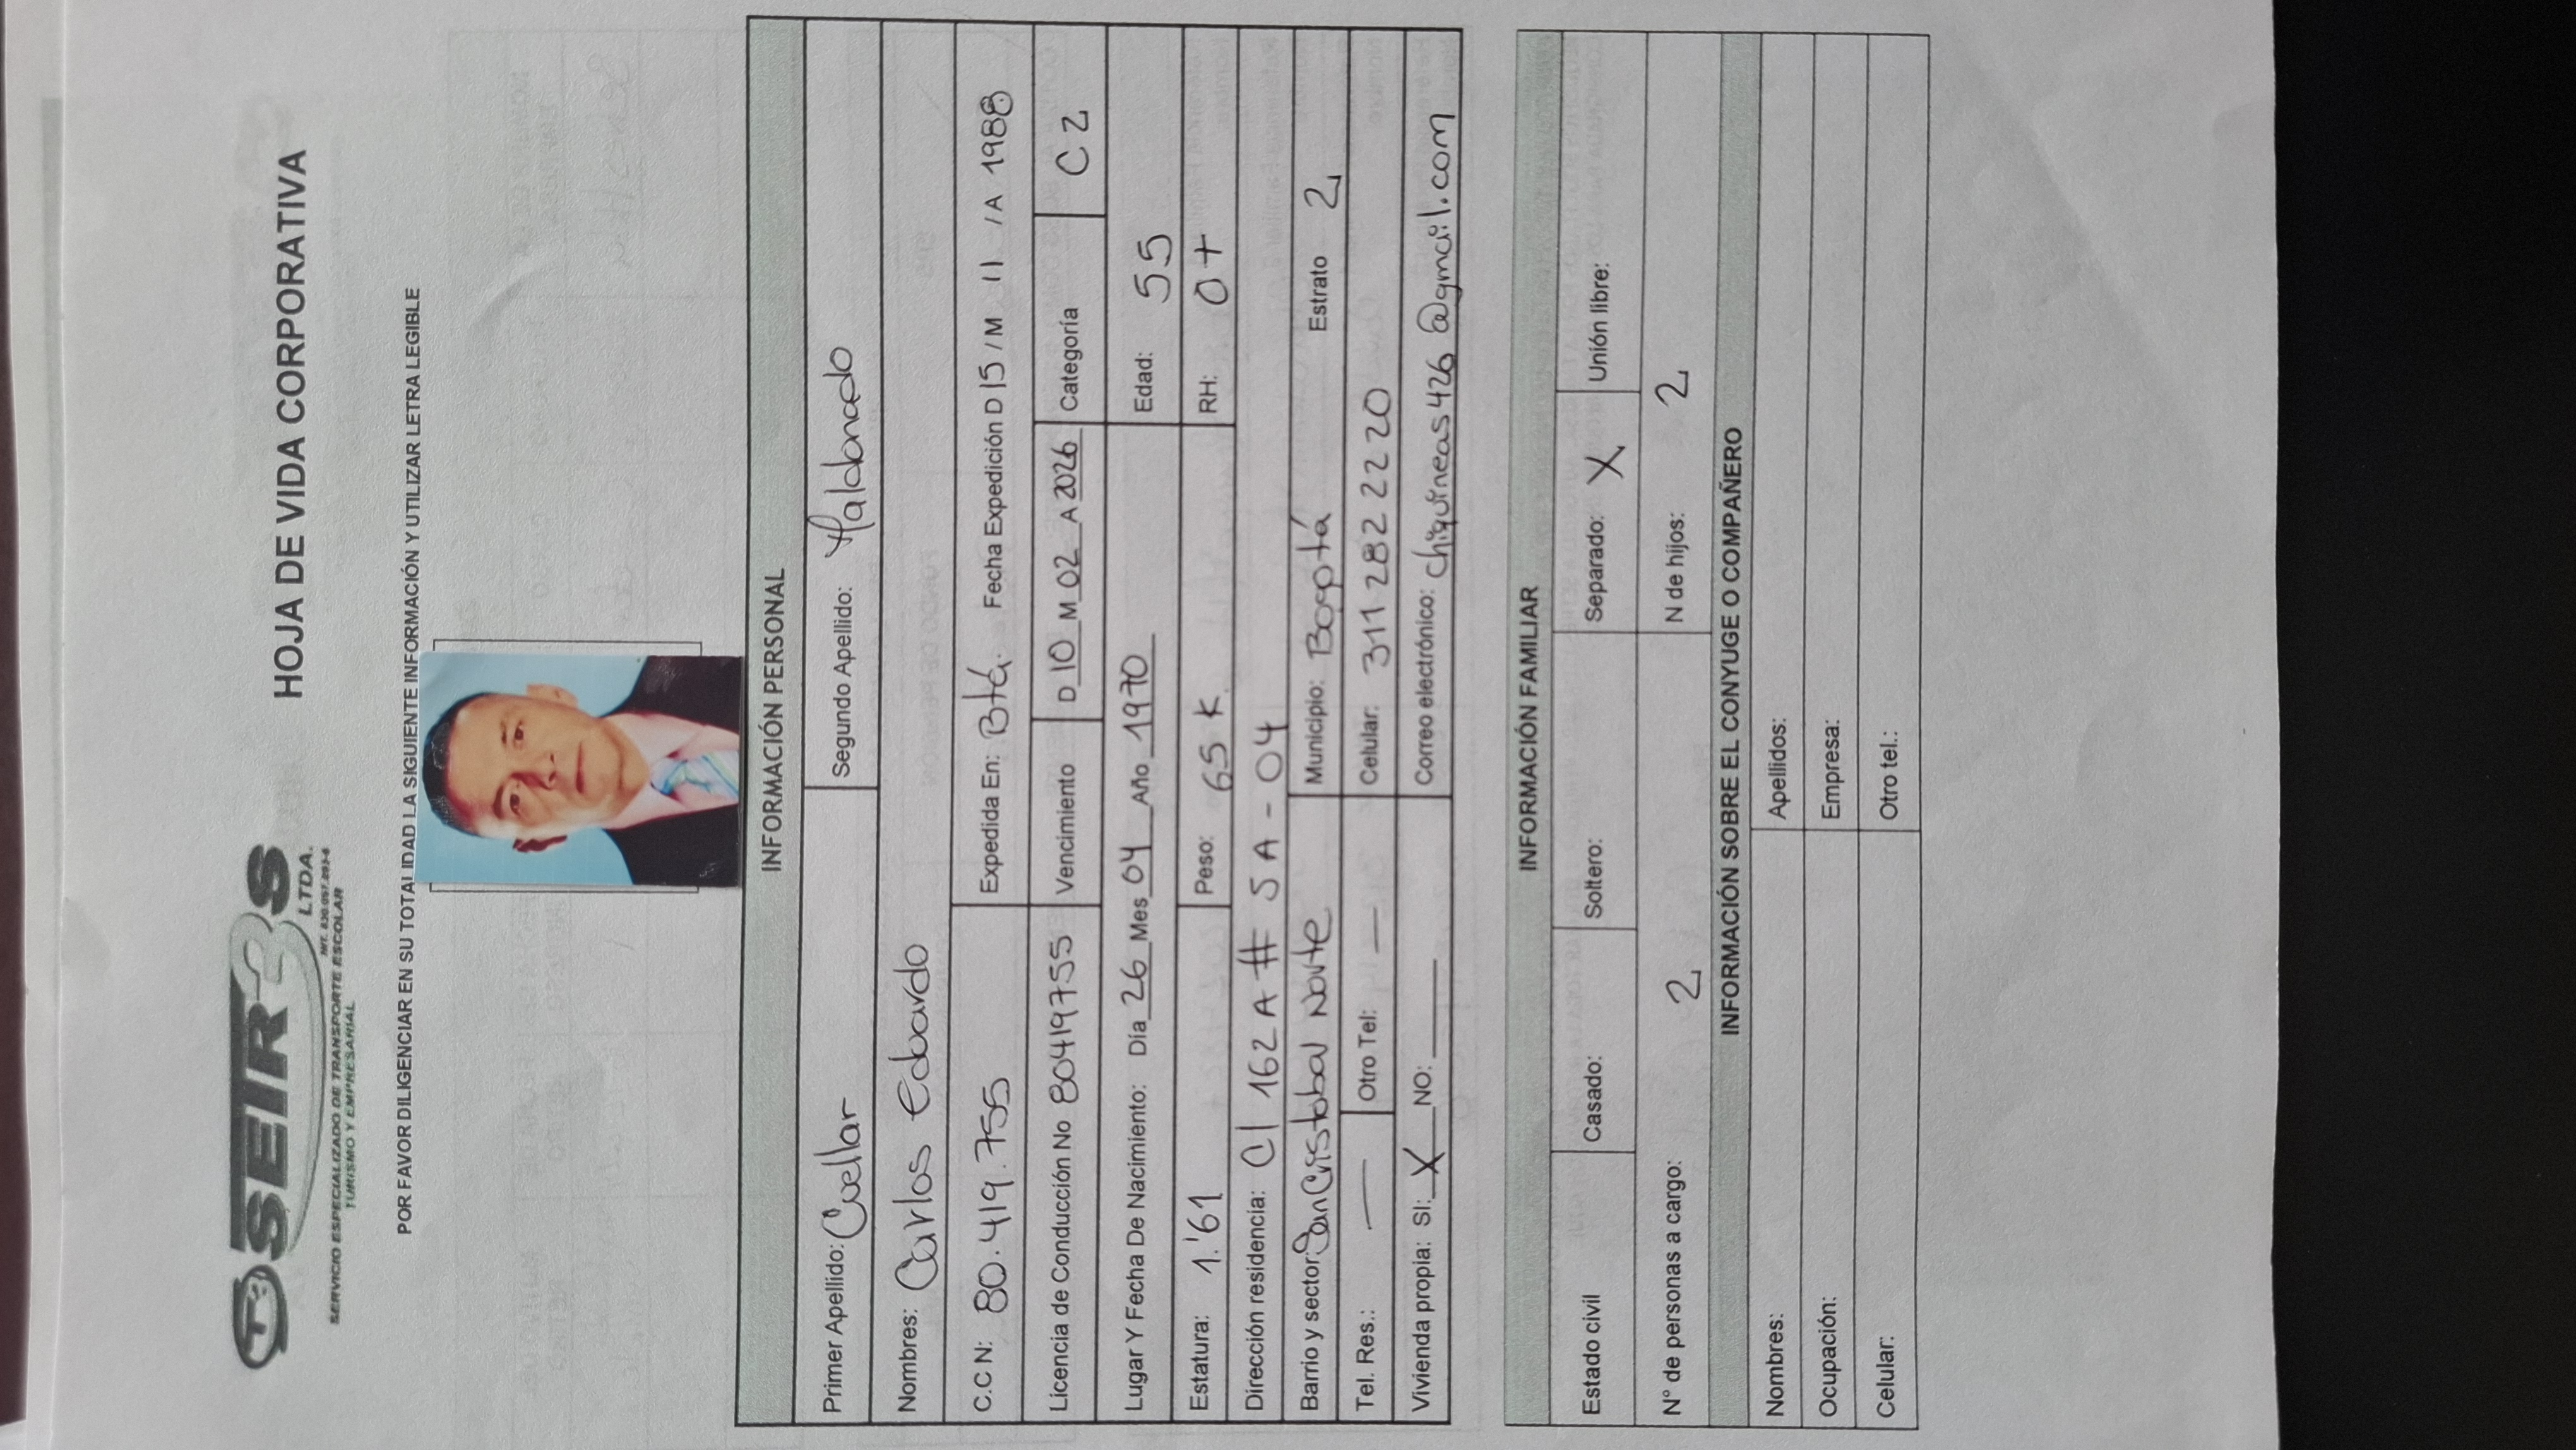 SEIR3S
LTDA.
NIT. 830.057.293-6
SERVICIO ESPECIALIZADO DE TRANSPORTE ESCOLAR
TURISMO Y EMPRESARIAL
HOJA DE VIDA CORPORATIVA
POR FAVOR DILIGENCIAR EN SU TOTALIDAD LA SIGUIENTE INFORMACIÓN Y UTILIZAR LETRA LEGIBLE
INFORMACIÓN PERSONAL
Primer Apellido: Cuellar Segundo Apellido: Maldonado
Nombres: Carlos Eduardo
C.C N: 80.419.755 Expedida En: Btá. Fecha Expedición D 15 / M 11 / A 1988
Licencia de Conducción No 80419755 Vencimiento D 10 M 02 A 2026 Categoría C2
Lugar Y Fecha De Nacimiento: Día 26 Mes 04 Año 1970 Edad: 55
Estatura: 1.'61 Peso: 65 K RH: O+
Dirección residencia: Cl 162 A # 5 A - 04
Barrio y sector: San Cristobal Norte Municipio: Bogotá Estrato 2
Tel. Res.: — Otro Tel: — Celular: 311 282 22 20
Vivienda propia: SI: X NO: ____ Correo electrónico: chiquineas426@gmail.com
INFORMACIÓN FAMILIAR
Estado civil Casado: Soltero: Separado: X Unión libre:
N° de personas a cargo: 2 N de hijos: 2
INFORMACIÓN SOBRE EL CONYUGE O COMPAÑERO
Nombres: Apellidos:
Ocupación: Empresa:
Celular: Otro tel.: